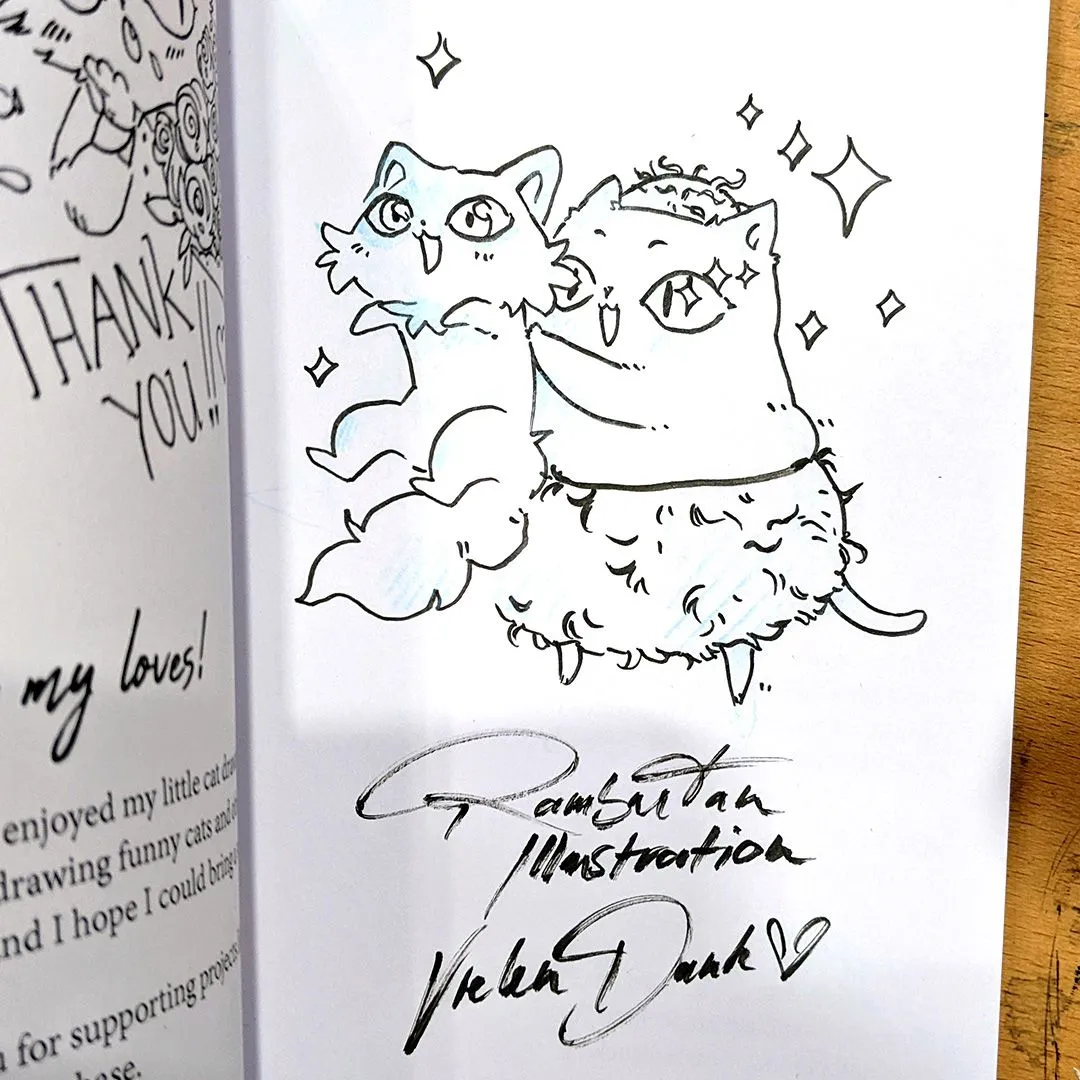 THANK
YOU!!
my loves!
enjoyed my little cat
drawing funny cats and
and I hope I could bring
for supporting projects
Rambutan
Illustration
Vielen Dank